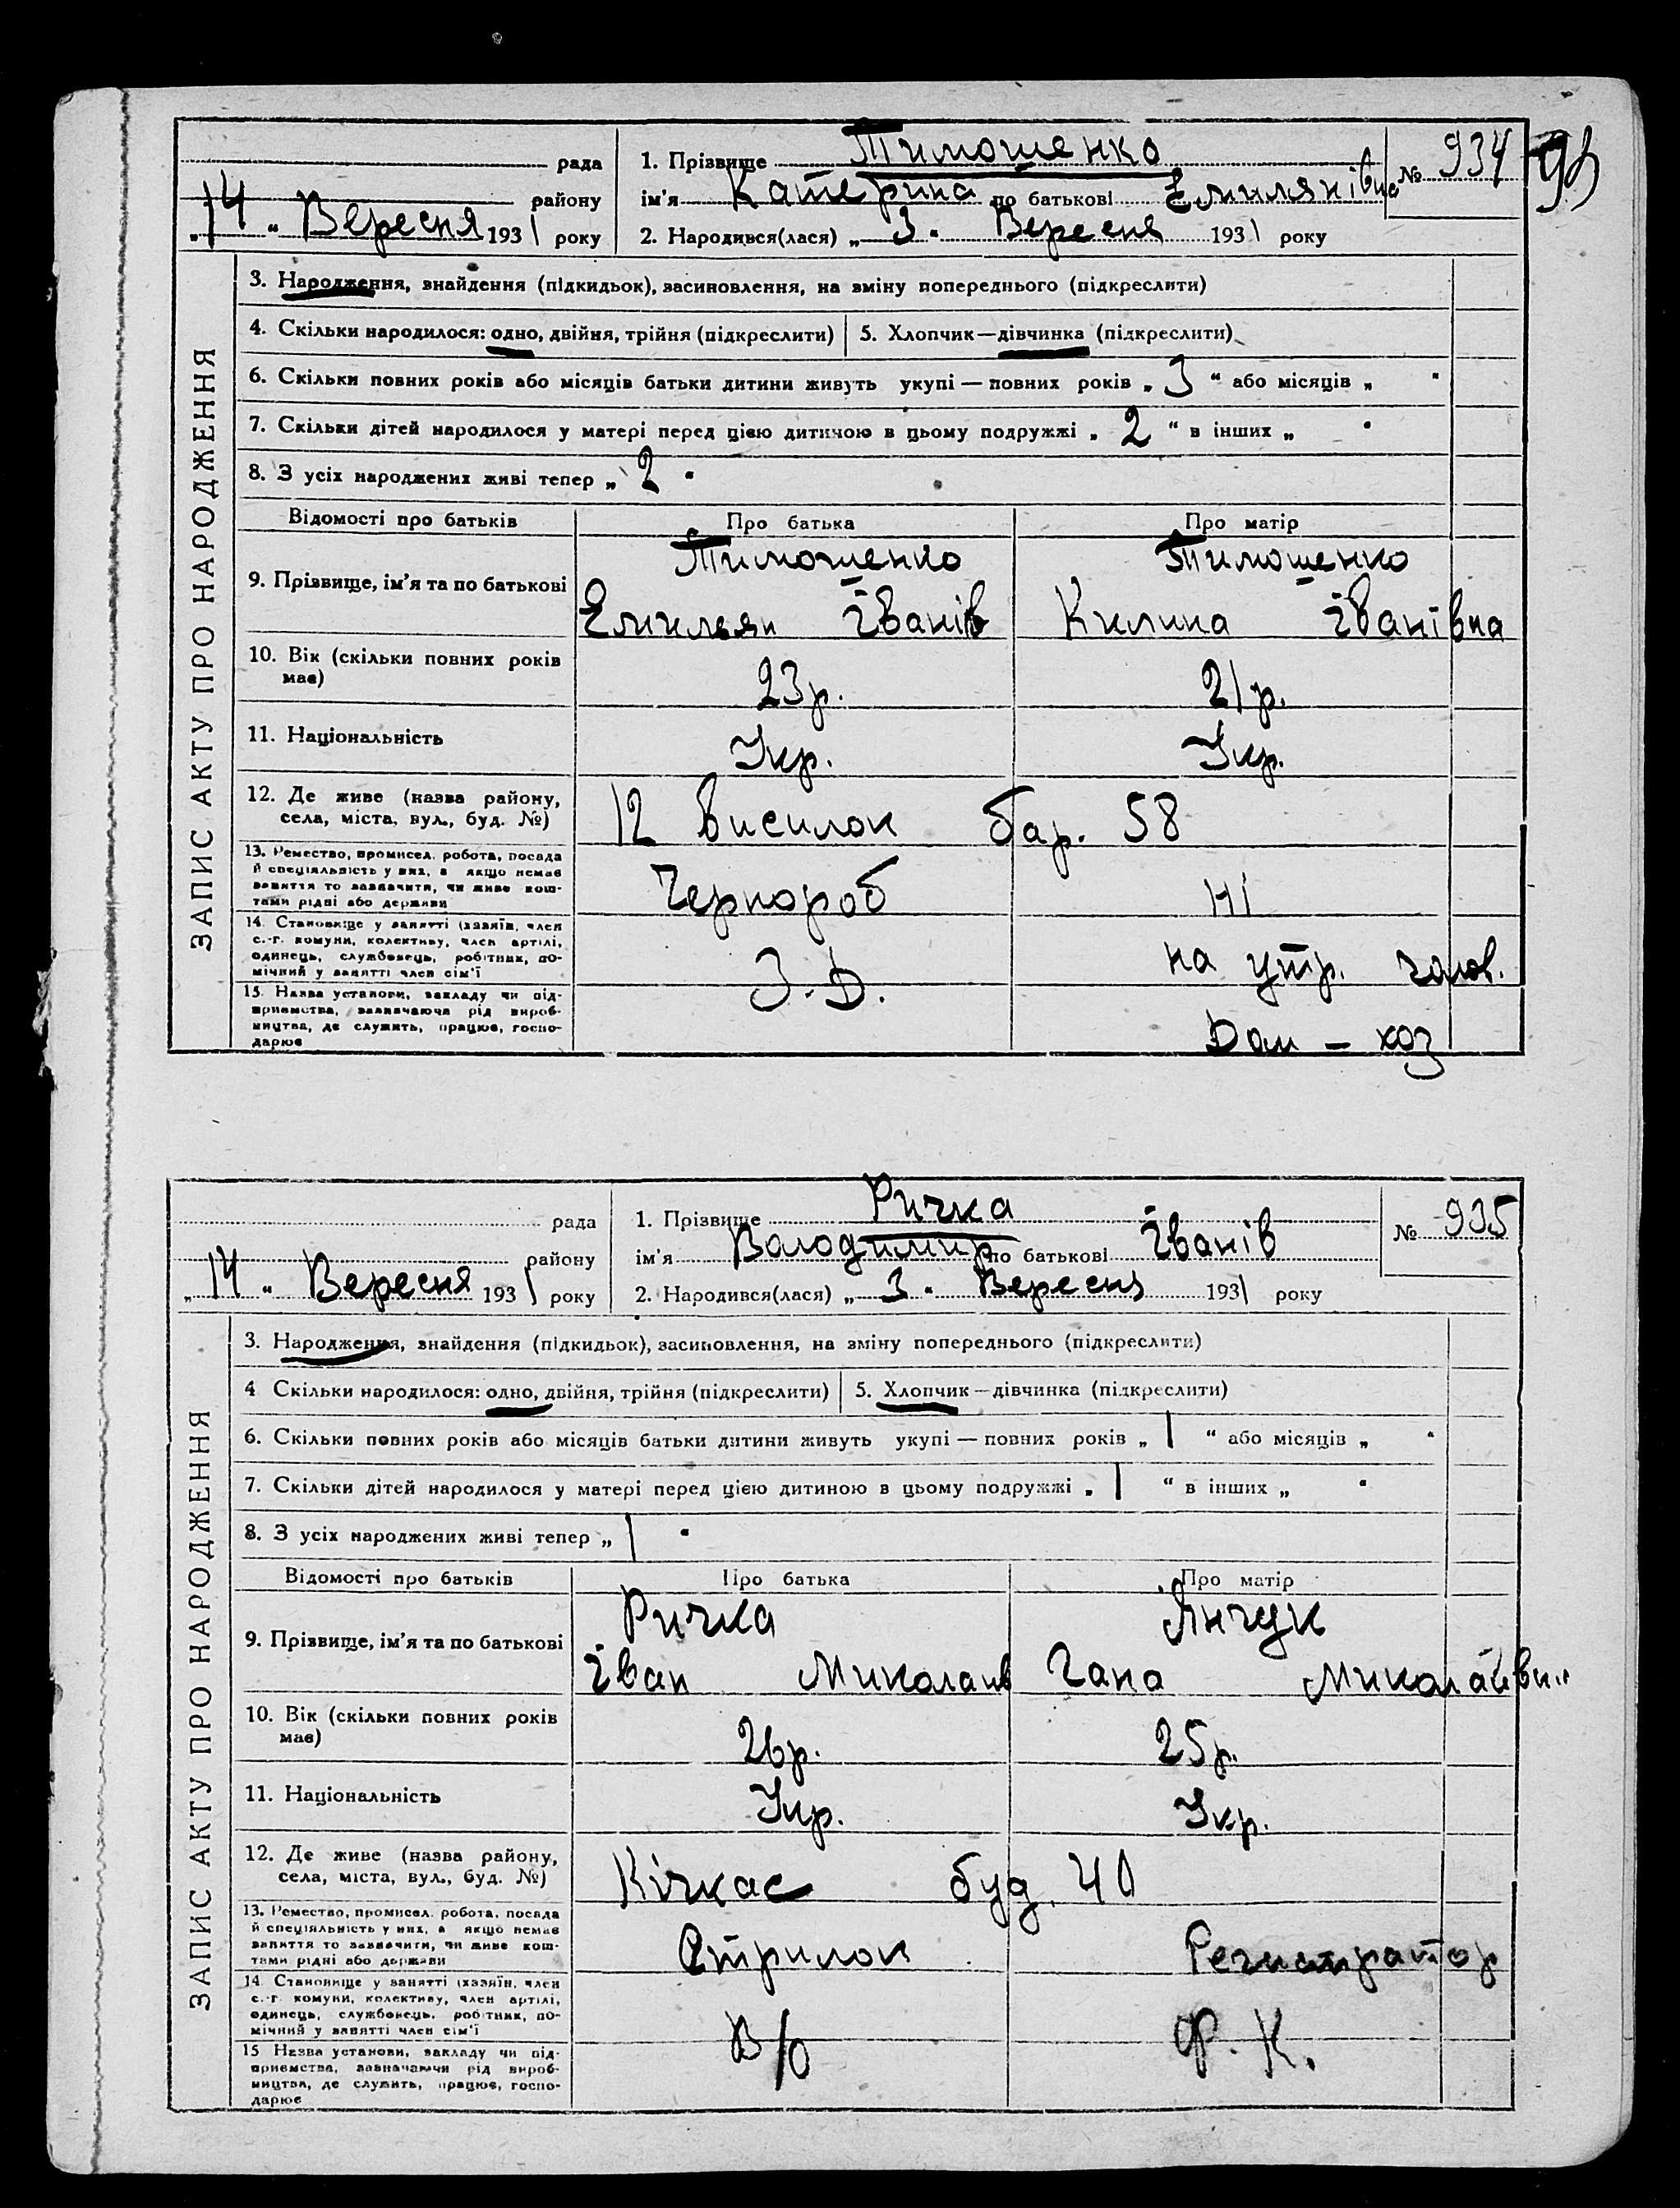 93
рада
району
„14“ Вересня 1931 року
1. Прізвище Тимошенко
ім'я Катерина по батькові Емилянівна
2. Народився(лася) „3“ Вересня 1931 року
№ 934
ЗАПИС АКТУ ПРО НАРОДЖЕННЯ
3. Народження, знайдення (підкидьок), засиновлення, на зміну попереднього (підкреслити)
4. Скільки народилося: одно, двійня, трійня (підкреслити) 5. Хлопчик—дівчинка (підкреслити)
6. Скільки повних років або місяців батьки дитини живуть укупі — повних років „3“ або місяців „ “
7. Скільки дітей народилося у матері перед цією дитиною в цьому подружжі „2“ в інших „ “
8. З усіх народжених живі тепер „2“
Відомості про батьків Про батька Про матір
9. Прізвище, ім'я та по батькові
Тимошенко Тимошенко
Емильян Іванів Килина Іванівна
10. Вік (скільки повних років має) 23р. 21р.
11. Національність Укр. Укр.
12. Де живе (назва району, села, міста, вул., буд. №) 12 висилок бар. 58
13. Ремество, промисел, робота, посада й спеціяльність у них, а якщо немає заняття то зазначити, чи живе коштами рідні або держави
Чернороб Ні
14. Становище у занятті (хазяїн, член с.-г. комуни, колективу, член артілі, одинець, службовець, робітник, помічний у занятті член сім'ї
З.Д. на утр. чолов.
15. Назва установи, закладу чи підприємства, зазначаючи рід виробництва, де служить, працює, господарює
Дом - хоз
рада
району
„14“ Вересня 1931 року
1. Прізвище Ричка
ім'я Володимир по батькові Іванів
2. Народився(лася) „3“ Вересня 1931 року
№ 935
ЗАПИС АКТУ ПРО НАРОДЖЕННЯ
3. Народження, знайдення (підкидьок), засиновлення, на зміну попереднього (підкреслити)
4 Скільки народилося: одно, двійня, трійня (підкреслити) 5. Хлопчик—дівчинка (підкреслити)
6. Скільки повних років або місяців батьки дитини живуть укупі — повних років „1“ або місяців „ “
7. Скільки дітей народилося у матері перед цією дитиною в цьому подружжі „1“ в інших „ “
8. З усіх народжених живі тепер „1“
Відомості про батьків Про батька Про матір
9. Прізвище, ім'я та по батькові
Ричка Янчук
Іван Миколаів Гана Миколаівн
10. Вік (скільки повних років має) 26р. 25р.
11. Національність Укр. Укр.
12. Де живе (назва району, села, міста, вул., буд. №) Кічкас буд. 40
13. Ремество, промисел, робота, посада й спеціяльність у них, а якщо немає заняття то зазначити, чи живе коштами рідні або держави
Стрилок Регистратор
14. Становище у занятті (хазяїн, член с.-г. комуни, колективу, член артілі, одинець, службовець, робітник, помічний у занятті член сім'ї
В/о Ф. К.
15 Назва установи, закладу чи підприємства, зазначаючи рід виробництва, де служить, працює, господарює